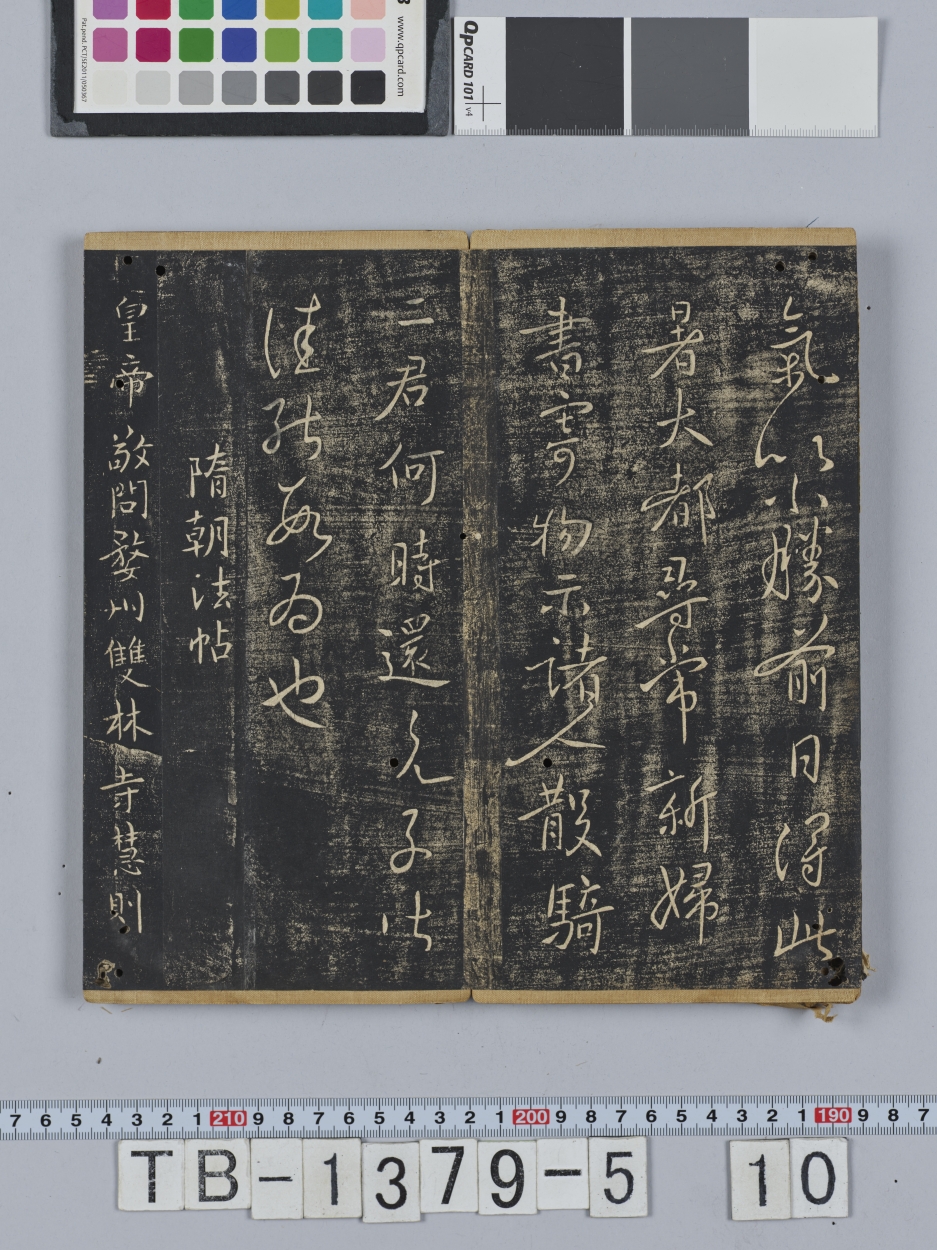 QPCARD 101 v4
www.qpcard.com
氣以小勝前日得此
暑大都尋常新婦
書寄物示諸人散騎
二君何時還允子比
佳能數為也
隋朝法帖
皇帝敬問婺州雙林寺慧則
7 6 5 4 3 2 1 210 9 8 7 6 5 4 3 2 1 200 9 8 7 6 5 4 3 2 1 190 9 8 7
TB-1379-5 10